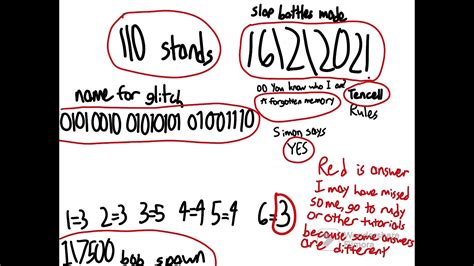 slap battles made
110 stands
16\2\2021
DO You know who I am?
A forgotten memory
Tencell
Rules
name for glitch
01010010 01010101 01001110
Simon says
YES
Red is answer
I may have missed
some, go to rudy
or other tutorials
because some answers
are different
1=3 2=3 3=5 4=4 5=4 6=3
1\7500 bob spawn